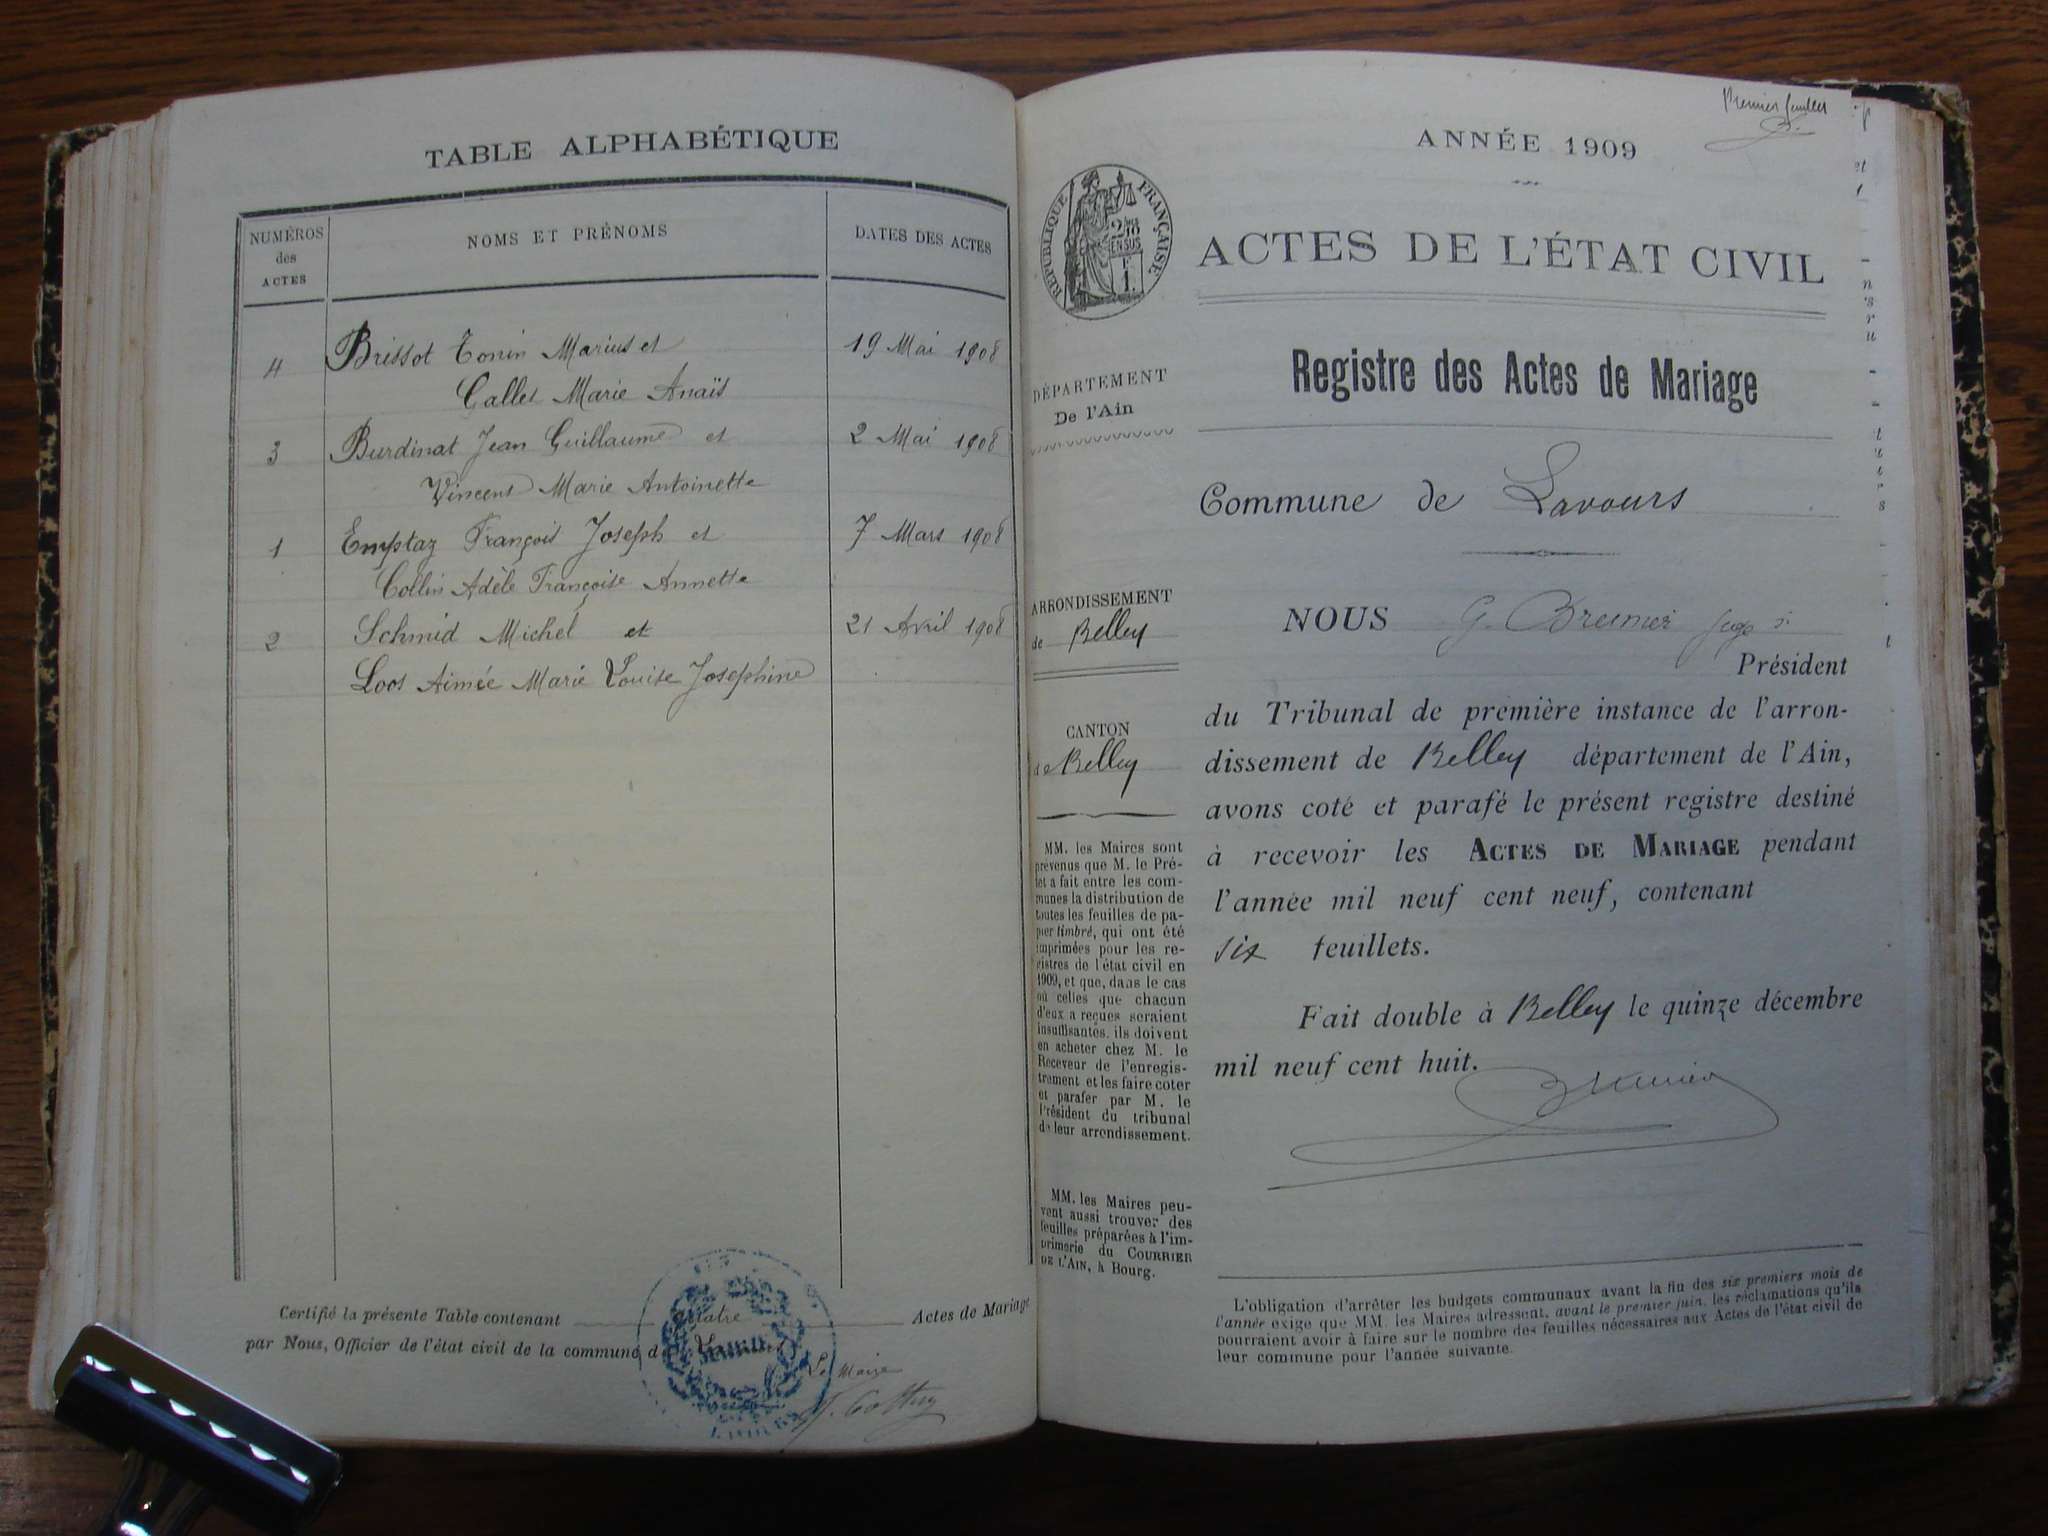 TABLE ALPHABÉTIQUE
NUMÉROS des ACTES
NOMS ET PRÉNOMS
DATES DES ACTES
4 Brissot Tonin Marius et 19 Mai 1908
Callet Marie Anaïs
3 Burdinat Jean Guillaume et 2 Mai 1908
Vincent Marie Antoinette
1 Emptaz François Joseph et 7 Mars 1908
Collin Adèle Françoise Annette
2 Schmid Michel et 21 Avril 1908
Loos Aimée Marie Louise Josephine
Certifié la présente Table contenant quatre Actes de Mariage
par Nous, Officier de l'état civil de la commune d
Le Maire
Premier feuillet
ANNÉE 1909
RÉPUBLIQUE FRANÇAISE
2/10 EN SUS
F. 1.
ACTES DE L'ÉTAT CIVIL
Registre des Actes de Mariage
DÉPARTEMENT
De l'Ain
Commune de Lavours
ARRONDISSEMENT
de Belley
CANTON
de Belley
MM. les Maires sont
prévenus que M. le Pré-
fet a fait entre les com-
munes la distribution de
toutes les feuilles de pa-
pier timbré, qui ont été
imprimées pour les re-
gistres de l'état civil en
1909, et que, dans le cas
où celles que chacun
d'eux a reçues seraient
insuffisantes, ils doivent
en acheter chez M. le
Receveur de l'enregis-
trement et les faire coter
et parafer par M. le
Président du tribunal
de leur arrondissement.
MM. les Maires peu-
vent aussi trouver des
feuilles préparées à l'im-
primerie du COURRIER
DE L'AIN, à Bourg.
NOUS G.
Président
du Tribunal de première instance de l'arron-
dissement de Belley département de l'Ain,
avons coté et parafé le présent registre destiné
à recevoir les ACTES DE MARIAGE pendant
l'année mil neuf cent neuf, contenant
six feuillets.
Fait double à Belley le quinze décembre
mil neuf cent huit.
L'obligation d'arrêter les budgets communaux avant la fin des six premiers mois de
l'année exige que MM. les Maires adressent, avant le premier juin, les réclamations qu'ils
pourraient avoir à faire sur le nombre des feuilles nécessaires aux Actes de l'état civil de
leur commune pour l'année suivante.